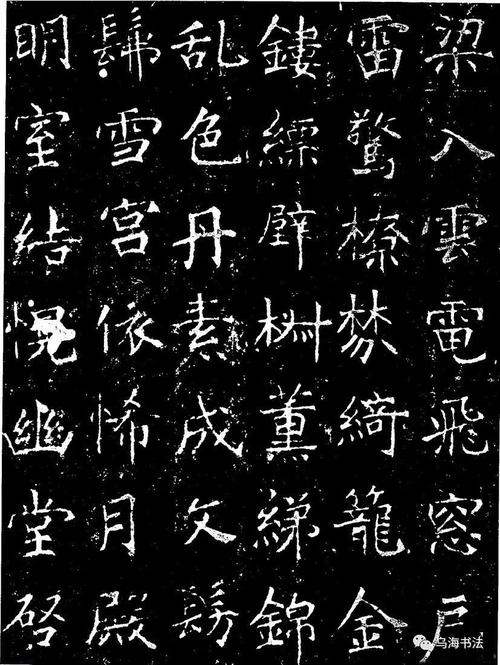 梁入雲電飛窓戶
雷驚橑棼綺籠金
鏤縹壁樹薰綈錦
乱色丹素成文髣
髴雪宮依悕月殿
明室結幌幽堂啓
乌海书法